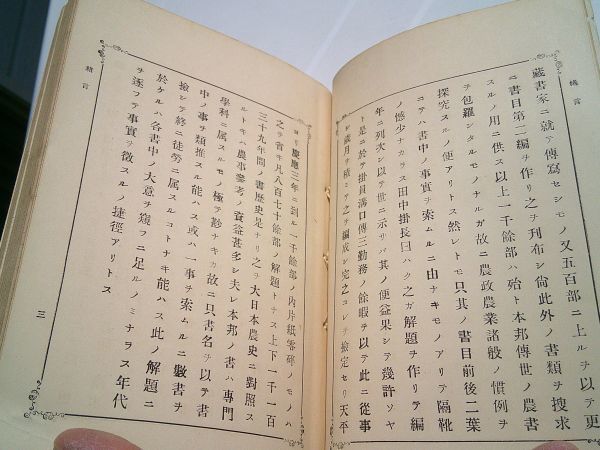 緒言
藏書家ニ就テ傳寫セシモノ又五百部ニ上ルヲ以テ更
ニ書目第二編ヲ作リ之ヲ刊布シ尙此外ノ書類ヲ搜求
スルノ用ニ供ス以上一千餘部ハ殆ト本邦傳世ノ農書
ヲ包羅シタルモノナルカ故ニ農政農業諸般ノ慣例ヲ
探究スルノ便アリトス然レトモ只其ノ書目前後二葉
ニテハ書中ノ事實ヲ索ムルニ由ナキモノアリテ隔靴
ノ憾少ナカラス田中掛長曰ハク之カ解題ヲ作リテ編
年ニ列次シ以テ世ニ示サハ其ノ便益果シテ幾許ソヤ
ト是ニ於テ掛員溝口傳三勤務ノ餘暇ヲ以テ此ニ從事
シ歲月ヲ積ミテ之ヲ編成シ完之コレヲ檢定セリ天平
ヨリ慶應三年ニ到ル一千餘部ノ內片紙零碎ノモノハ
之ヲ省キ凡八百七十餘部ノ解題トナス上下一千一百
三十九年間ノ書歷史足ナリ之ヲ大日本農史ニ對照ス
ルトキハ農事參考ノ資益甚多シ夫レ本邦ノ書ハ專門
學科ニ属スルノモノ極テ尠ナキカ故ニ只書名ヲ以テ書
中ノ事ヲ類推スル能ハス或ハ一事ヲ索ムルニ數書ヲ
撿シテ終ニ徒勞ニ属スルコトナキ能ハス此ノ解題ニ
於ケルハ各書中ノ大意ヲ窺フニ足ルノミナラス年代
ヲ逐フテ事實ヲ徵スルノ捷徑アリトス
緒言
三